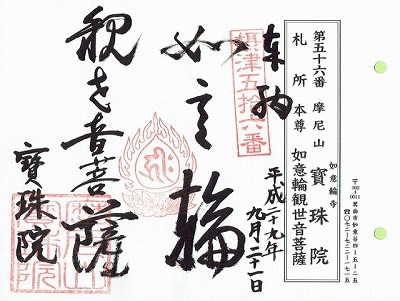 第五十六番 摩尼山 如意輪寺 寳珠院
札所本尊 如意輪観世音菩薩
〒562-0011 箕面市如意谷四-五-二五
奉納
摂津五拾六番
平成二十九年
九月二十一日
如意輪
観世音菩薩
寳珠院